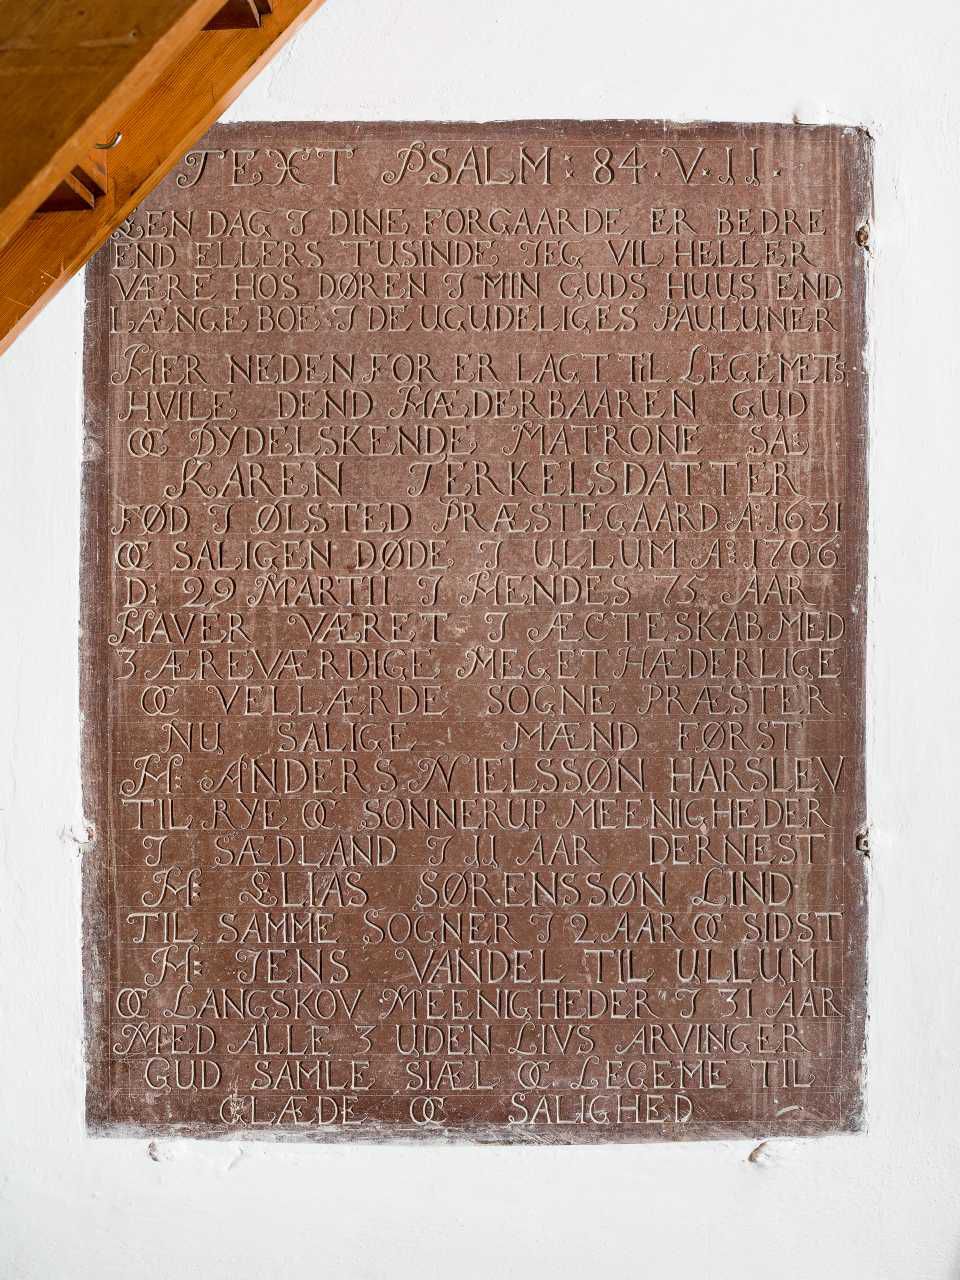 TEXT PSALM: 84. V. 11.
EEN DAG I DINE FORGAARDE ER BEDRE
END ELLERS TUSINDE JEG VIL HELLER
VÆRE HOS DØREN I MIN GUDS HUUS END
LÆNGE BOE I DE UGUDELIGES PAULUNER
HER NEDEN FOR ER LAGT TIL LEGEMETS
HVILE DEND HÆDERBAAREN GUD
OC DYDELSKENDE MATRONE SAL:
KAREN TERKELSDATTER
FØD I ØLSTED PRÆSTEGAARD Aº: 1631
OC SALIGEN DØDE I ULLUM Aº: 1706
D: 29 MARTII I HENDES 75. AAR
HAVER VÆRET I ÆCTESKAB MED
3 ÆREVÆRDIGE MEGET HÆDERLIGE
OC VELLÆRDE SOGNE PRÆSTER
NU SALIGE MÆND FØRST
H: ANDERS NIELSSØN HARSLEV
TIL RYE OC SONNERUP MEENIGHEDER
I SÆDLAND I 11 AAR DERNEST
H: ELIAS SØRENSSØN LIND
TIL SAMME SOGNER I 2 AAR OC SIDST
H: JENS VANDEL TIL ULLUM
OC LANGSKOV MEENIGHEDER I 31 AAR
MED ALLE 3 UDEN LIVS ARVINGER
GUD SAMLE SIÆL OC LEGEME TIL
GLÆDE OC SALIGHED